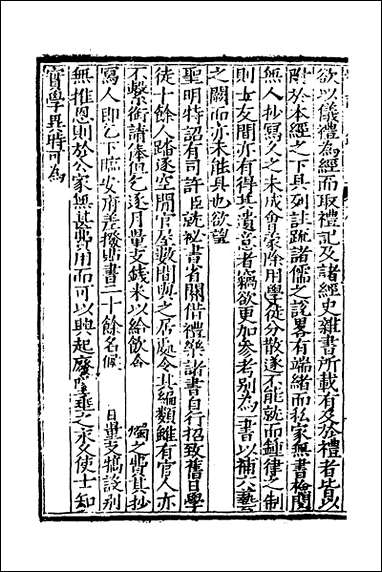 欲以儀禮為經而取禮記及諸經史雜書所載有及於禮者皆以
附於本經之下具列註疏諸儒之說畧有端緒而私家無書檢閱
無人抄寫久之未成會蒙除用學徒分散遂不能就而鍾律之制
則士友間亦有得其遺意者竊欲更加參考別為一書以補六藝
之闕而亦未能具也欲望
聖明特詔有司許臣就祕書省關借禮樂諸書自行招致舊日學
徒十餘人踏逐空閒官屋數間與之居處令其編類雖有官人亦
不繫銜請俸但乞逐月量支錢米以給飲食 燭之費其抄
寫人即乞下臨安府差撥貼書二十餘名候 日量支犒設別
無推恩則於公家無甚費用而可以興起廢墜垂之永久使士知
實學異時可為